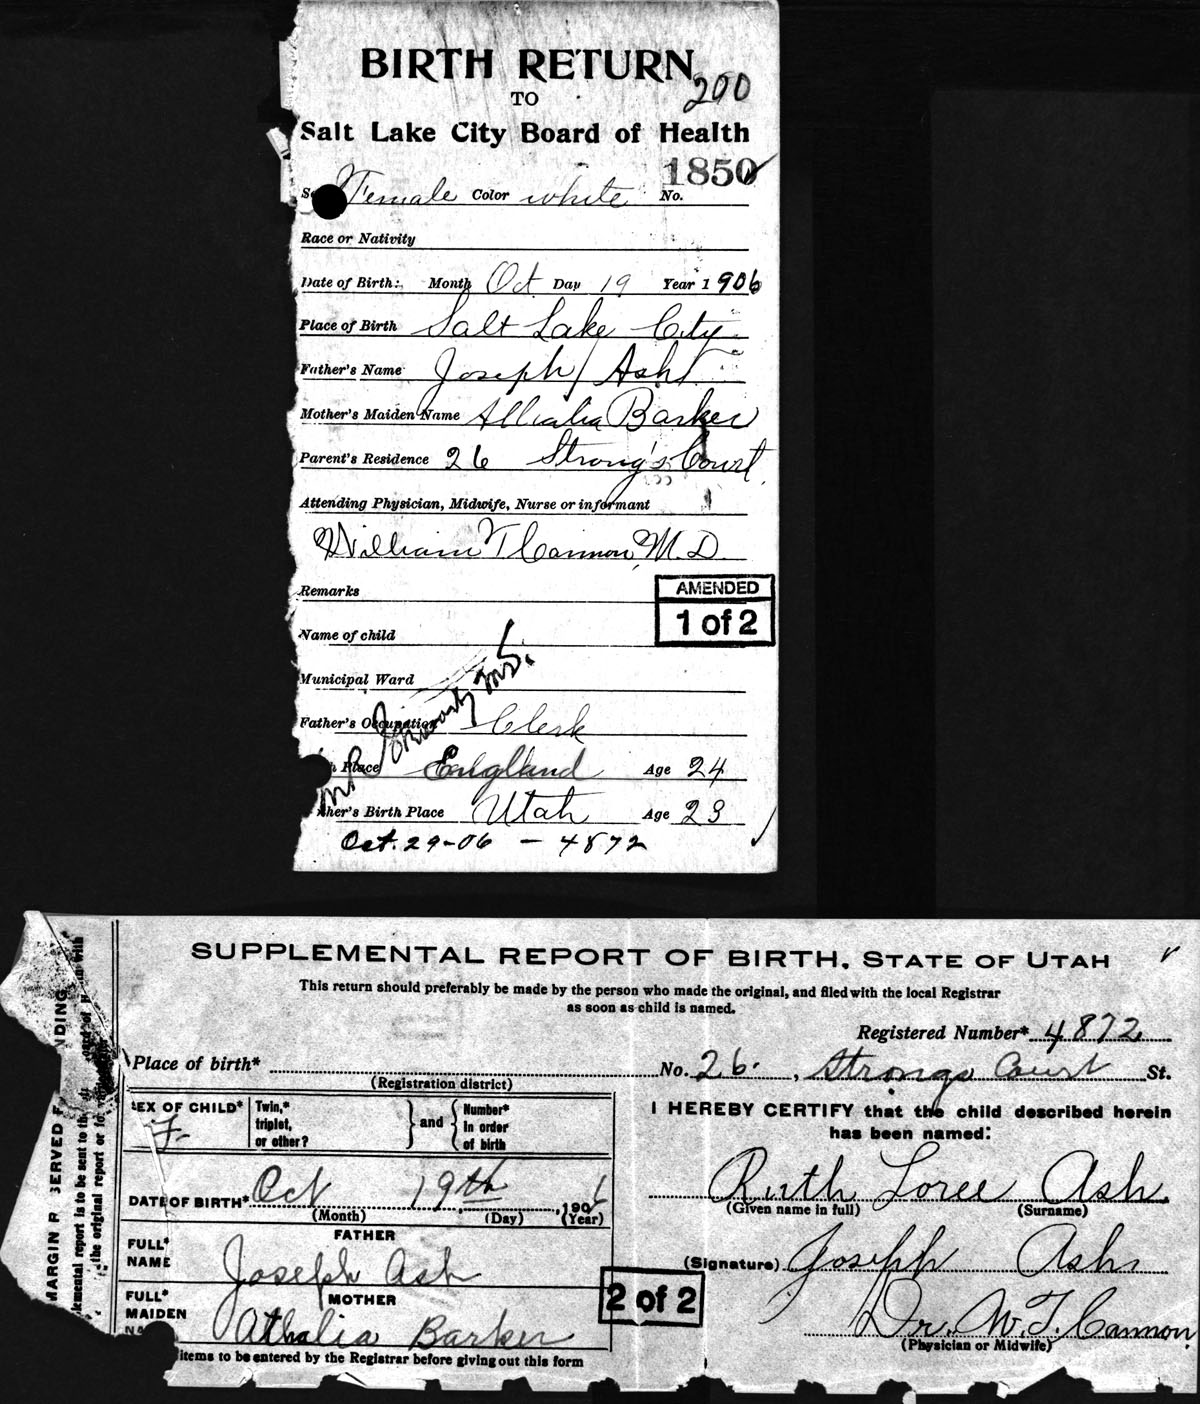 BIRTH RETURN
200
TO
Salt Lake City Board of Health
1850
Female Color white No.
Race or Nativity
Date of Birth: Month Oct Day 19 Year 1906
Place of Birth Salt Lake City
Father's Name Joseph Ash
Mother's Maiden Name Athalia Barker
Parent's Residence 26 Strong's Court
Attending Physician, Midwife, Nurse or informant
William T Cannon, M.D.
Remarks
AMENDED
1 of 2
Name of child
Municipal Ward
Father's Occupation Clerk
Place England Age 24
ther's Birth Place Utah Age 23
Oct. 29-06 - 4872
SUPPLEMENTAL REPORT OF BIRTH, STATE OF UTAH
This return should preferably be made by the person who made the original, and filed with the local Registrar
as soon as child is named.
Registered Number* 4872
Place of birth* No. 26, Strongs Court St.
(Registration district)
SEX OF CHILD* F. Twin,* triplet, or other? and Number* in order of birth
I HEREBY CERTIFY that the child described herein
has been named:
DATE OF BIRTH* Oct 19th, 1906
(Month) (Day) (Year)
Ruth Loree Ash
(Given name in full) (Surname)
FATHER
FULL* NAME Joseph Ash
(Signature) Joseph Ash
MOTHER
FULL* MAIDEN Athalia Barker
2 of 2
Dr. W. T. Cannon
(Physician or Midwife)
items to be entered by the Registrar before giving out this form
MARGIN R SERVED F NDING
lemental report is to be sent to the
the original report or